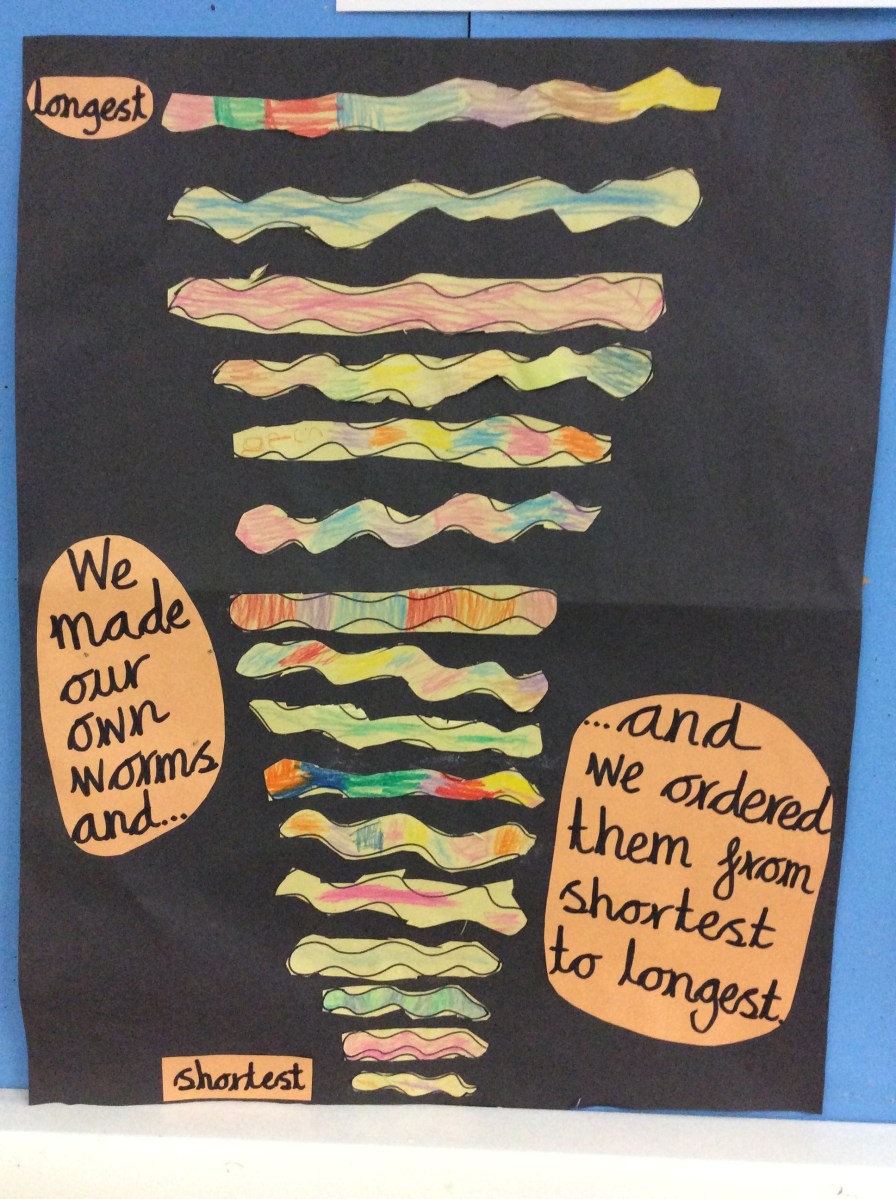 Longest
We
made
our
own
worms
and...
...and
we ordered
them from
shortest
to longest.
shortest